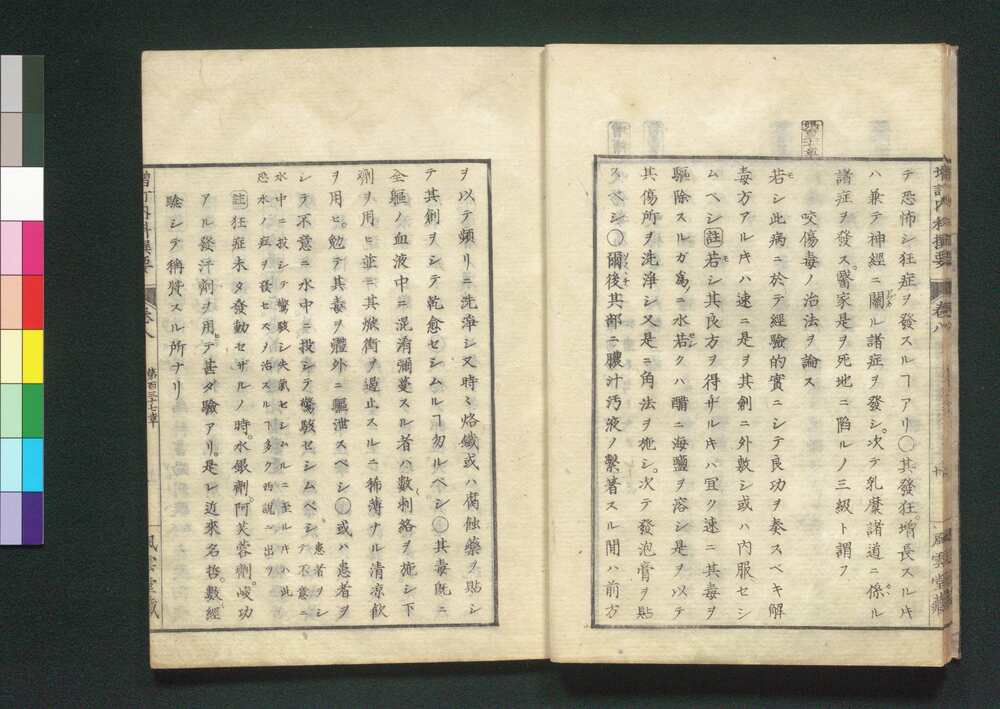 テ恐怖シ狂症ヲ發スルヿアリ〇其發狂増長スルキ
ハ兼テ神經ニ關ル諸症ヲ發シ。次テ乳糜諸道ニ係ル
諸症ヲ發ス。醫家是ヲ死地ニ陷ルノ三級ト謂フ
咬傷毒ノ治法ヲ論ス
若シ此病ニ於テ經驗的實ニシテ良功ヲ奏スベキ解
毒方アルキハ速ニ是ヲ其創ニ外敷シ或ハ内服セシ
ムベシ註若シ其良方ヲ得ザルキハ宜ク速ニ其毒ヲ
驅除スルガ爲ニ水若クハ醋ニ海鹽ヲ溶シ是ヲ以テ
其傷所ヲ洗淨シ又是ニ角法ヲ施シ。次テ發泡膏ヲ貼
スベシ〇爾後其部ニ膿汁汚液ノ繋著スル間ハ前方
増訂内科撰要
卷八
風雲堂藏
ヲ以テ頻リニ洗淨シ又時々烙鐵或ハ腐蝕藥ヲ貼シ
テ其創ヲシテ乾愈セシムルヿ勿ルベシ〇其毒既ニ
全軀ノ血液中ニ混淆彌蔓スル者ハ數刺絡ヲ施シ下
劑ヲ用ヒ並ニ其焮衝ヲ遏止スルニ稀薄ナル清涼飲
ヲ用ヒ。勉テ其毒ヲ體外ニ驅泄スベシ〇或ハ患者ヲ
シテ不意ニ水中ニ投シテ驚駭セシムベシ患者ヲシテ不意ニ
水中ニ投シテ驚駭シ失氣セシムルニ至ルキハ此
恐水ノ症ヲ發セズ治スルヿ多ク西説ニ出ヅ
註狂症未タ發動セザルノ時。水銀劑。阿芙蓉劑。峻功
アル發汗劑ヲ用テ甚ダ驗アリ。是レ近來名哲。數經
驗シテ稱賛スル所ナリ
増訂内科撰要
卷八
第百三十七章
風雲堂藏